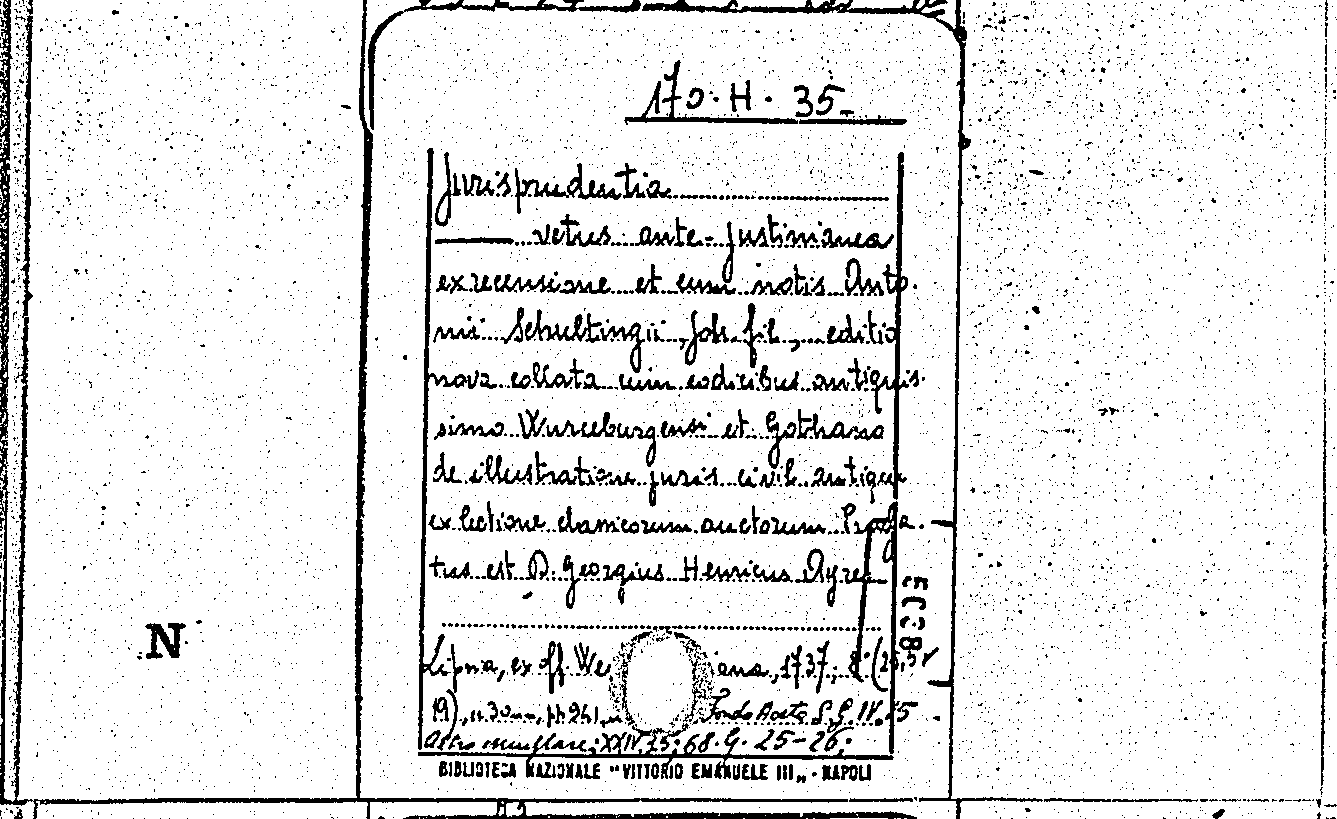 170. H. 35
Jurisprudentia
vetus ante-Justinianea
ex recensione et cum notis Anto.
nii Schultingii, Joh. fil., editio
nova collata cum codicibus antiquis.
simo Wurceburgensi et Gothano
de illustratione juris civil. antiqui
ex lectione classicorum auctorum Praefa.
tus est D. Georgius Henricus Ayrer
N
Lipsia, ex off. We iana, 1737, 8° (25,5 x
19), Fondo Aosta S. G. IV. 15
Altro esemplare: XXIV. 35; 68. G. 25-26;
BIBLIOTECA NAZIONALE "VITTORIO EMANUELE III„ - NAPOLI